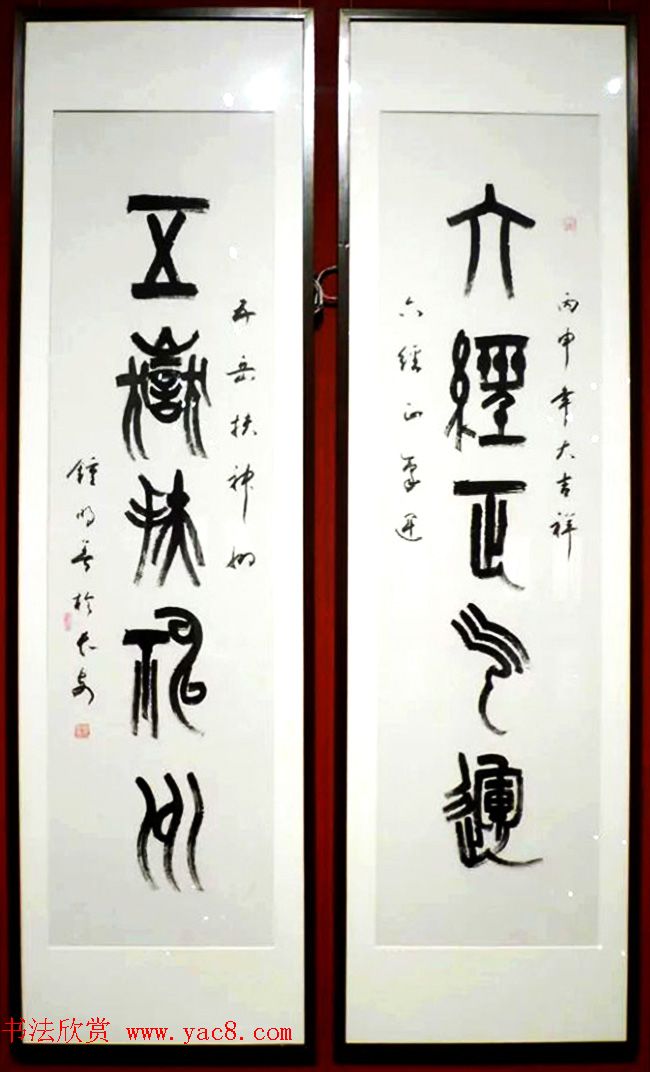 丙申年大吉祥
六經正气運
六經正气運
五岳扶神州
五嶽扶神州
鐘明善於長安
书法欣赏 www.yac8.com